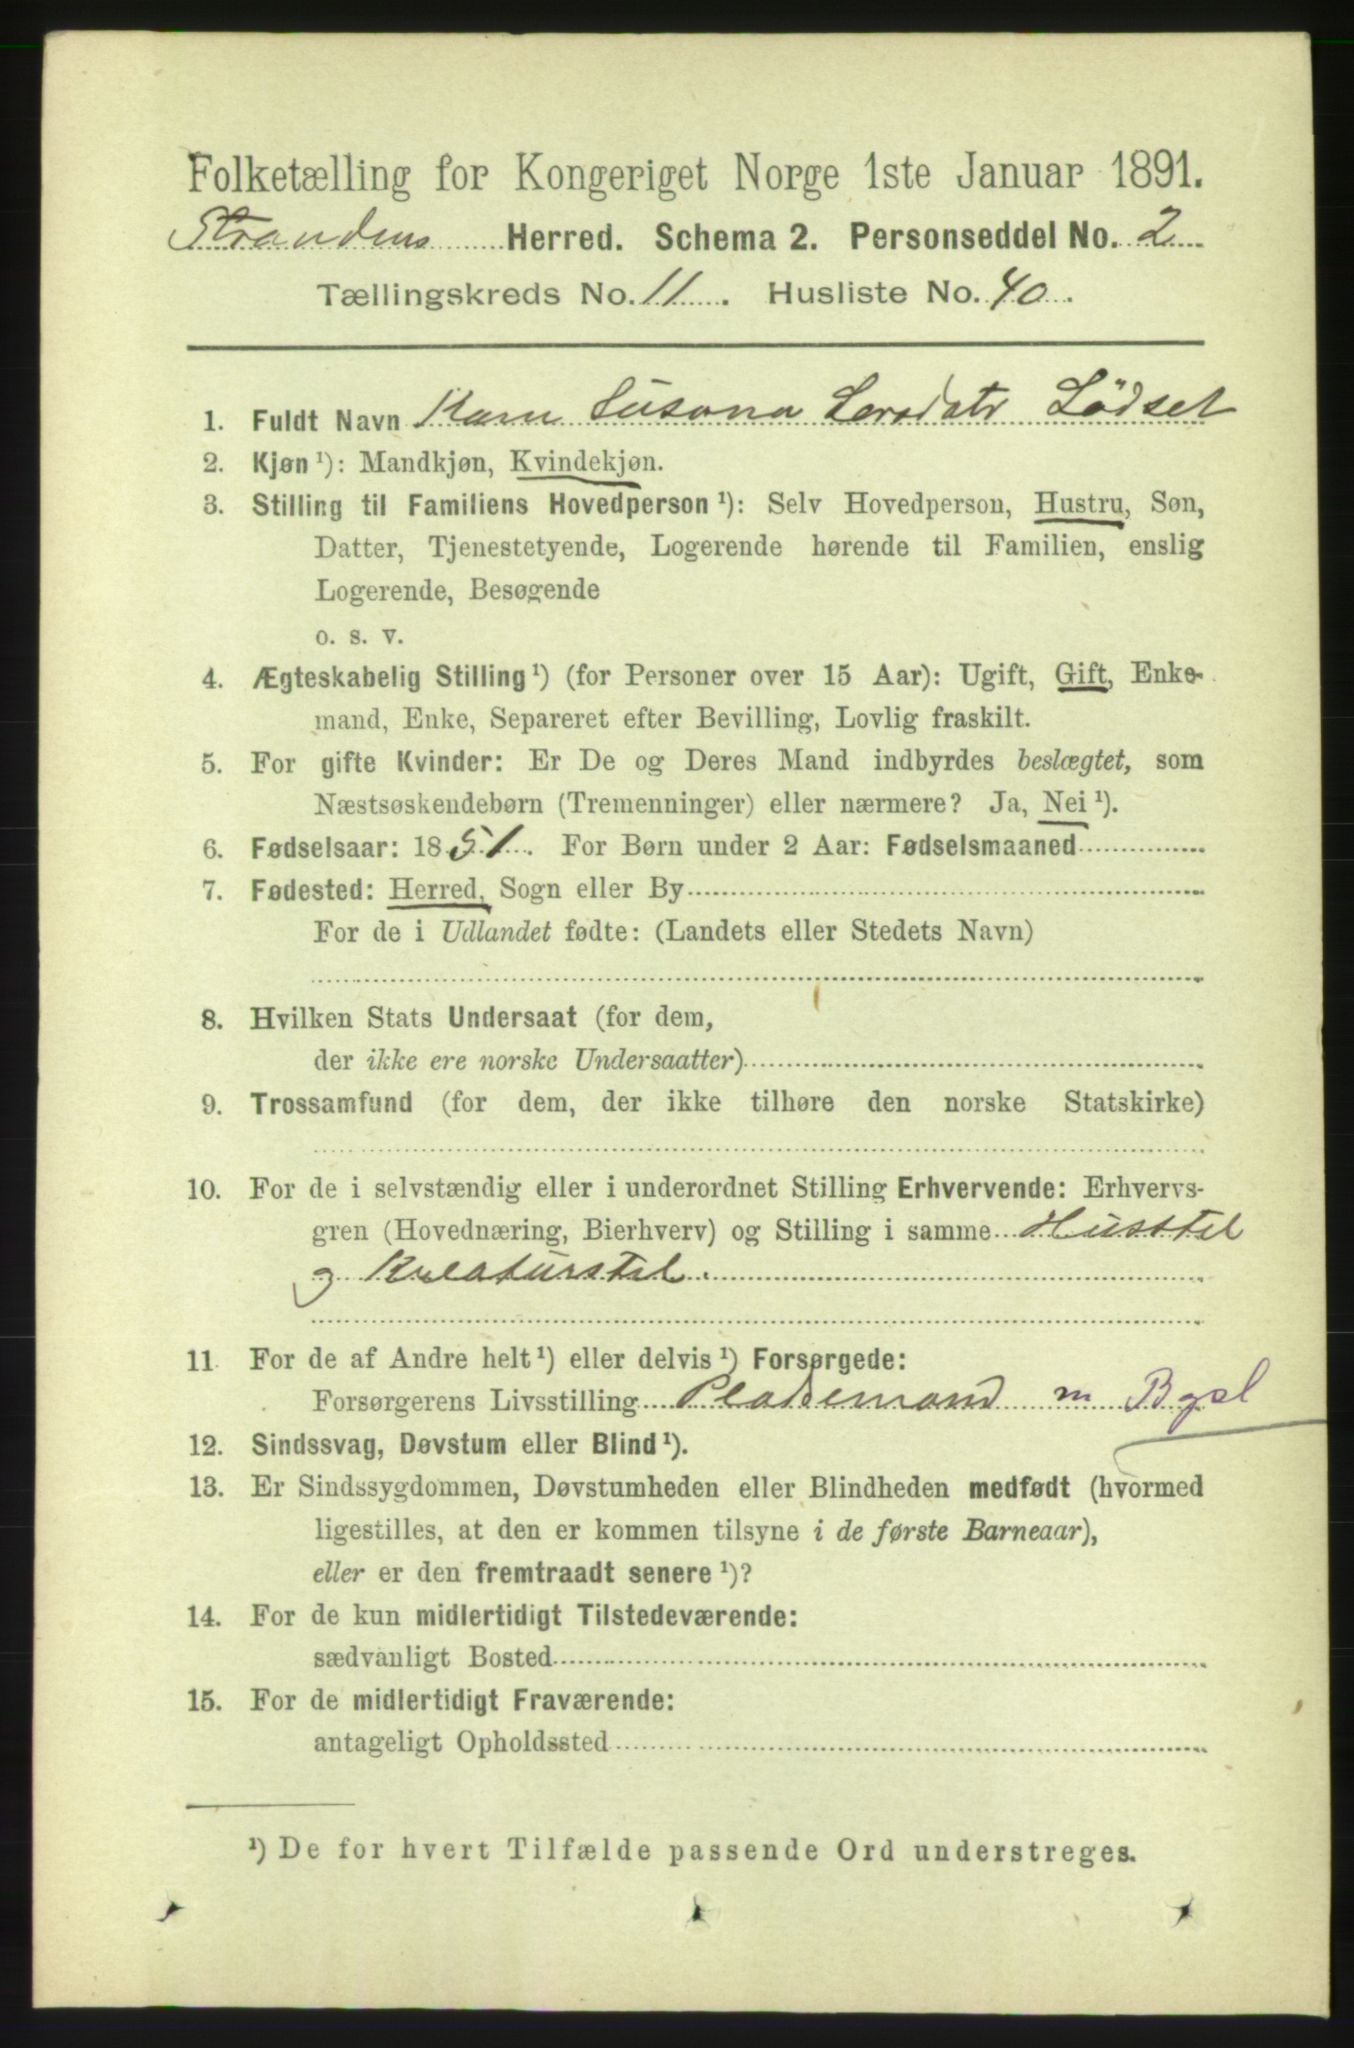 Folketælling for Kongeriget Norge 1ste Januar 1891.
Strandens Herred. Schema 2. Personseddel No. 2
Tællingskreds No. 11. Husliste No. 40.
1. Fuldt Navn Karn Susana Larsdatr Lödset
2. Kjøn ¹): Mandkjøn, Kvindekjøn.
3. Stilling til Familiens Hovedperson ¹): Selv Hovedperson, Hustru, Søn,
Datter, Tjenestetyende, Logerende hørende til Familien, enslig
Logerende, Besøgende
o. s. v.
4. Ægteskabelig Stilling ¹) (for Personer over 15 Aar): Ugift, Gift, Enke-
mand, Enke, Separeret efter Bevilling, Lovlig fraskilt.
5. For gifte Kvinder: Er De og Deres Mand indbyrdes beslægtet, som
Næstsøskendebørn (Tremenninger) eller nærmere? Ja, Nei ¹).
6. Fødselsaar: 1851. For Børn under 2 Aar: Fødselsmaaned
7. Fødested: Herred, Sogn eller By
For de i Udlandet fødte: (Landets eller Stedets Navn)
8. Hvilken Stats Undersaat (for dem,
der ikke ere norske Undersaatter)
9. Trossamfund (for dem, der ikke tilhøre den norske Statskirke)
10. For de i selvstændig eller i underordnet Stilling Erhvervende: Erhvervs-
gren (Hovednæring, Bierhverv) og Stilling i samme Husstel
og Kreaturstel.
11 For de af Andre helt ¹) eller delvis ¹) Forsørgede:
Forsørgerens Livsstilling Pladsemand m Bgsl
12. Sindssvag, Døvstum eller Blind ¹).
13. Er Sindssygdommen, Døvstumheden eller Blindheden medfødt (hvormed
ligestilles, at den er kommen tilsyne i de første Barneaar),
eller er den fremtraadt senere ¹)?
14. For de kun midlertidigt Tilstedeværende:
sædvanligt Bosted
15. For de midlertidigt Fraværende:
antageligt Opholdssted
¹) De for hvert Tilfælde passende Ord understreges.